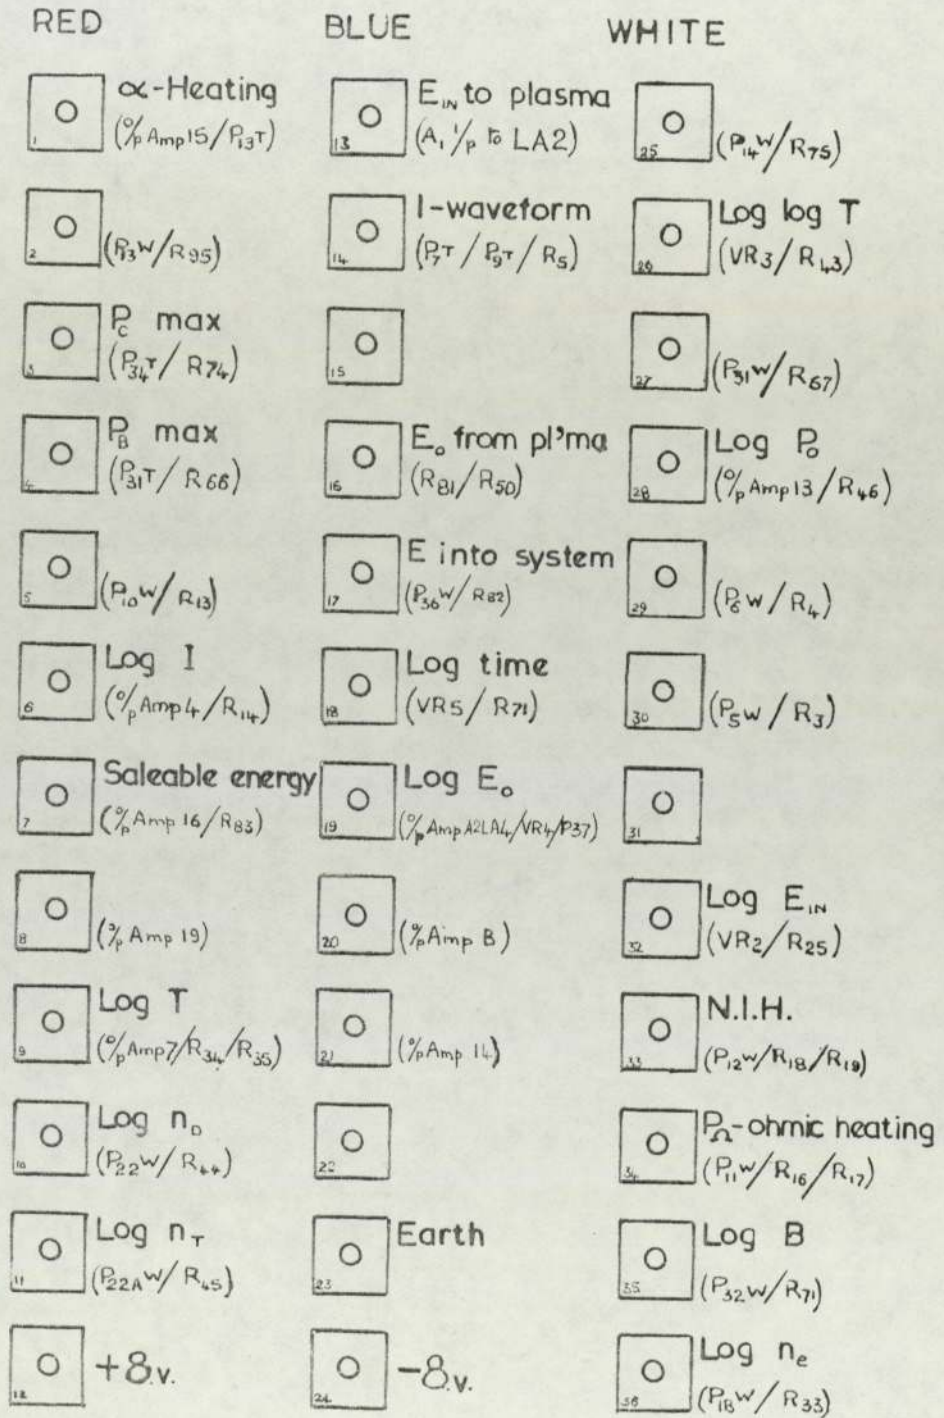 RED
1
α-Heating
(o/p Amp 15/P13T)
2
(P13W/R95)
3
Pc max
(P34T/R74)
4
PB max
(P31T/R66)
5
(P10W/R13)
6
Log I
(o/p Amp 4/R14)
7
Saleable energy
(o/p Amp 16/R83)
8
(o/p Amp 19)
9
Log T
(o/p Amp 7/R34/R35)
10
Log nD
(P22W/R44)
11
Log nT
(P22AW/R45)
12
+8.v.
BLUE
13
EIN to plasma
(A, i/p to LA2)
14
I-waveform
(P7T/P9T/R5)
15
16
Eo from pl'ma
(R81/R50)
17
E into system
(P36W/R82)
18
Log time
(VR5/R71)
19
Log Eo
(o/p Amp A2LA4/VR4/P37)
20
(o/p Amp B)
21
(o/p Amp 14)
22
23
Earth
24
-8.v.
WHITE
25
(P14W/R75)
26
Log log T
(VR3/R43)
27
(P31W/R67)
28
Log Po
(o/p Amp 13/R46)
29
(P6W/R4)
30
(P5W/R3)
31
32
Log EIN
(VR2/R25)
33
N.I.H.
(P12W/R18/R19)
34
PΩ-ohmic heating
(P11W/R16/R17)
35
Log B
(P32W/R71)
36
Log ne
(P18W/R33)